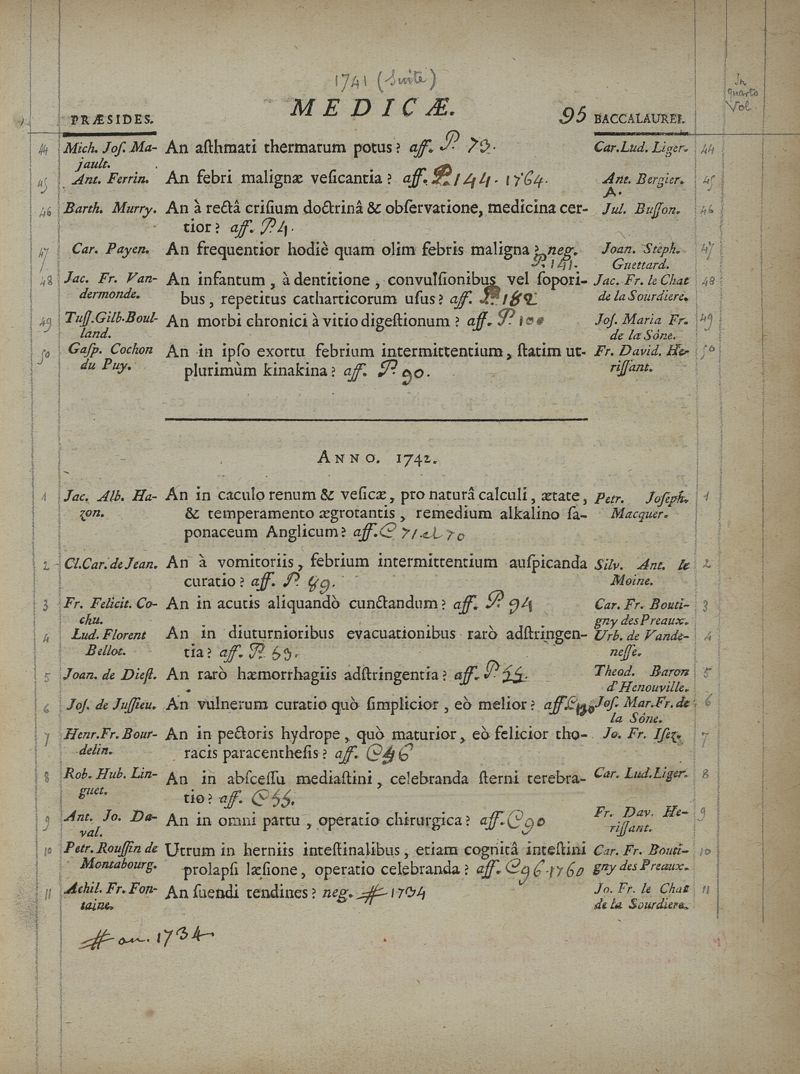 1741 (Suite)
In
quarto
Vol
MEDICÆ.
95
PRÆSIDES.
BACCALAUREI.
44 Mich. Jos. Ma- An aſthmati thermarum potus? aff. P. 79. Car. Lud. Liger. 44
jault.
45 Ant. Ferrin. An febri malignæ veſicantia? aff. P. 144. 1764. Ant. Bergier. 45
A.
46 Barth. Murry. An à rectâ criſium doctrinâ & obſervatione, medicina cer- Jul. Buſſon. 46
tior? aff. P. 4.
47 Car. Payen. An frequentior hodiè quam olim febris maligna? neg. Joan. Steph. 47
P. 141. Guettard.
48 Jac. Fr. Van- An infantum, à dentitione, convulſionibus vel ſopori- Jac. Fr. le Chat 48
dermonde. bus, repetitus catharticorum uſus? aff. P. 182 de la Sourdiere.
49 Tuſſ. Gilb. Boul- An morbi chronici à vitio digeſtionum? aff. P. 100 Joſ. Maria Fr. 49
land. de la Sône.
50 Gaſp. Cochon An in ipſo exortu febrium intermittentium, ſtatim ut- Fr. David. He- 50
du Puy. plurimùm kinakina? aff. P. 90. riſſant.
ANNO. 1742.
1 Jac. Alb. Ha- An in caculo renum & veſicæ, pro naturâ calculi, ætate, Petr. Joſeph. 1
zon. & temperamento ægrotantis, remedium alkalino ſa- Macquer.
ponaceum Anglicum? aff. C 71. et 70
2 Cl. Car. de Jean. An à vomitoriis, febrium intermittentium auſpicanda Silv. Ant. le 2
curatio? aff. P. 99. Moine.
3 Fr. Felicit. Co- An in acutis aliquandò cunctandum? aff. P. 94 Car. Fr. Bouti- 3
chu. gny des Preaux.
4 Lud. Florent An in diuturnioribus evacuationibus rarò adſtringen- Urb. de Vande- 4
Bellot. tia? aff. P. 53. neſſe.
5 Joan. de Dieſt. An rarò hæmorrhagiis adſtringentia? aff. P. 55. Theod. Baron 5
d'Henouville.
6 Joſ. de Juſſieu. An vulnerum curatio quò ſimplicior, eò melior? aff. Joſ. Mar. Fr. de 6
la Sône.
7 Henr. Fr. Bour- An in pectoris hydrope, quò maturior, eò felicior tho- Jo. Fr. Iſez. 7
delin. racis paracentheſis? aff. C 46
8 Rob. Hub. Lin- An in abſceſſu mediaſtini, celebranda ſterni terebra- Car. Lud. Liger. 8
guet. tio? aff. C 55.
9 Ant. Jo. Da- An in omni partu, operatio chirurgica? aff. C 90 Fr. Dav. He- 9
val. riſſant.
10 Petr. Rouſſin de Utrum in herniis inteſtinalibus, etiam cognitâ inteſtini Car. Fr. Bouti- 10
Montabourg. prolapſi læſione, operatio celebranda? aff. C 96. 1760 gny des Preaux.
11 Achil. Fr. Fon- An ſuendi tendines? neg. # 1734 Jo. Fr. le Chat 11
taine. de la Sourdiere.
# an. 1734